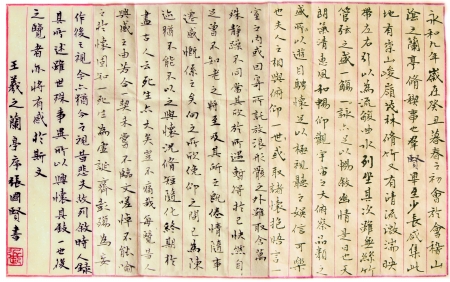 永和九年歲在癸丑暮春之初會於會稽山
陰之蘭亭脩禊事也群賢畢至少長咸集此
地有崇山峻嶺茂林脩竹又有清流激湍映
帶左右引以為流觴曲水列坐其次雖無絲竹
管弦之盛一觴一詠亦足以暢敘幽情是日也天
朗氣清惠風和暢仰觀宇宙之大俯察品類之
盛所以遊目騁懷足以極視聽之娛信可樂
也夫人之相與俯仰一世或取諸懷抱悟言一
室之內或因寄所託放浪形骸之外雖取舍萬
殊靜躁不同當其欣於所遇暫得於己快然自
足不知老之將至及其所之既倦情隨事
遷感慨係之矣向之所欣俛仰之間已為陳
迹猶不能不以之興懷況脩短隨化終期於
盡古人云死生亦大矣豈不痛哉每覽昔人
興感之由若合一契未嘗不臨文嗟悼不能喻
之於懷固知一死生為虛誕齊彭殤為妄
作後之視今亦猶今之視昔悲夫故列敘時人錄
其所述雖世殊事異所以興懷其致一也後
之覽者亦將有感於斯文
王羲之蘭亭序張國賢書